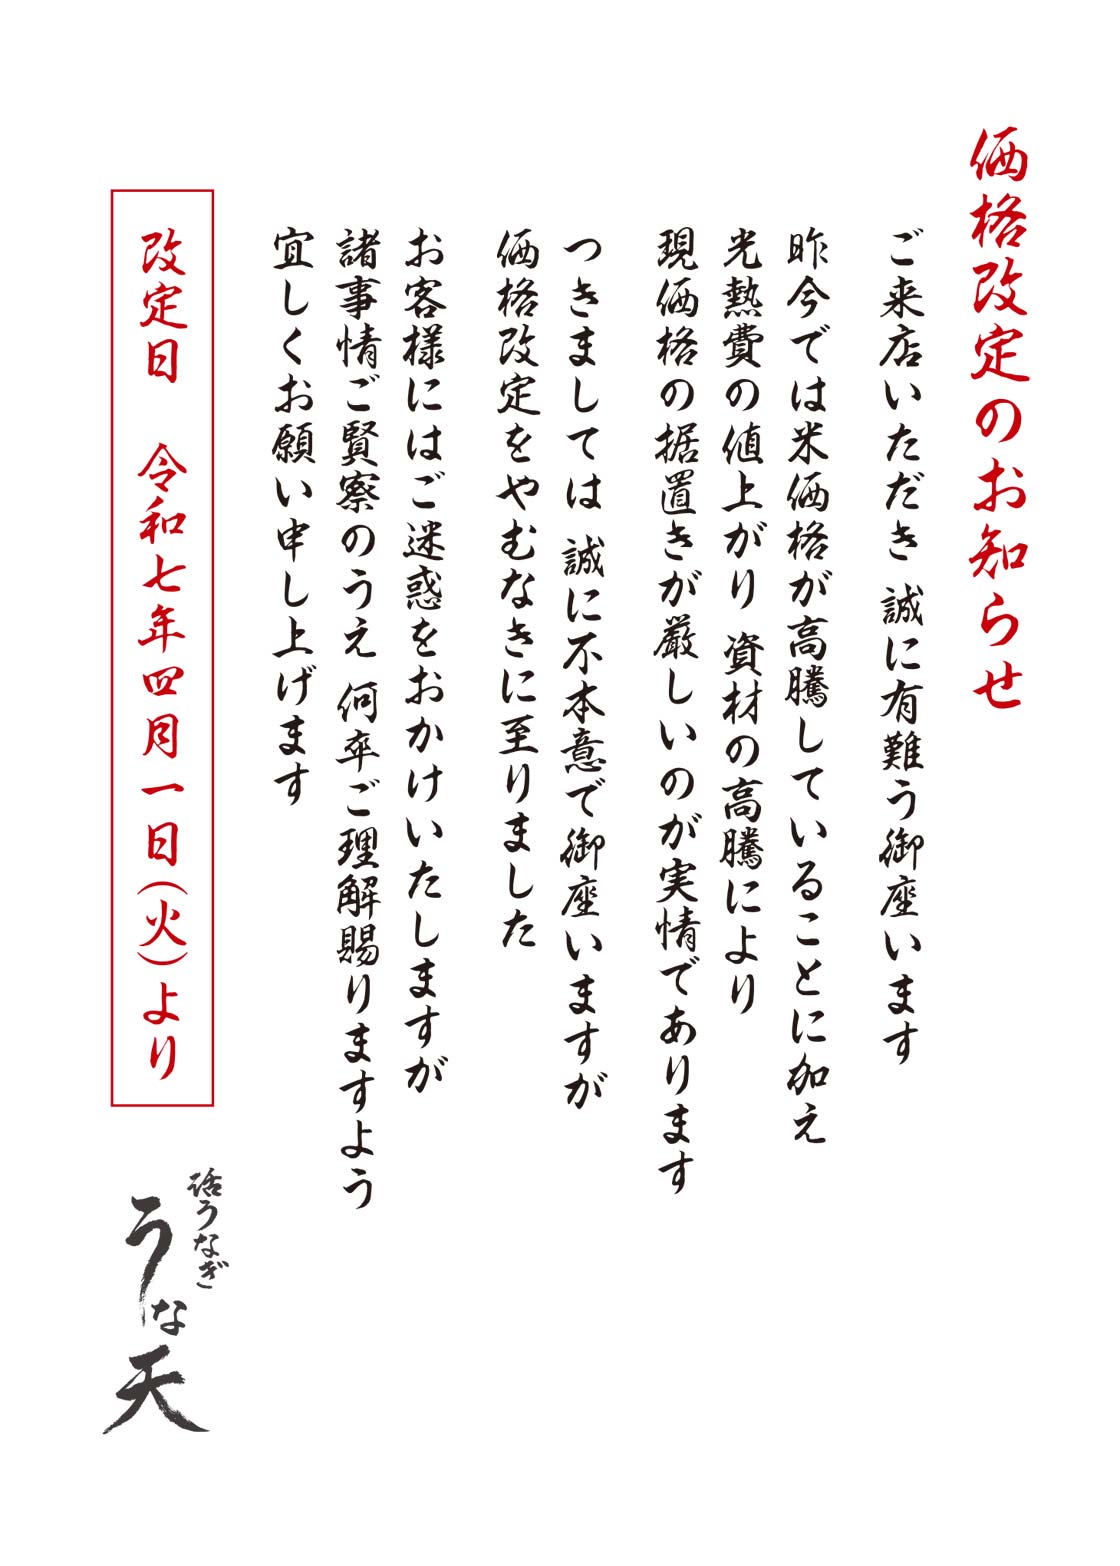 価格改定のお知らせ
ご来店いただき 誠に有難う御座います
昨今では米価格が高騰していることに加え
光熱費の値上がり 資材の高騰により
現価格の据置きが厳しいのが実情であります
つきましては 誠に不本意で御座いますが
価格改定をやむなきに至りました
お客様にはご迷惑をおかけいたしますが
諸事情ご賢察のうえ 何卒ご理解賜りますよう
宜しくお願い申し上げます
改定日 令和七年四月一日(火)より
活うなぎ
うな天